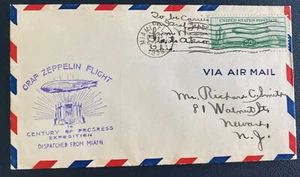 To be Carried
UNITED STATES POSTAGE
MIAMI
1933
50
GRAF ZEPPELIN FLIGHT
VIA AIR MAIL
CENTURY OF PROGRESS
EXPOSITION
DISPATCHED FROM MIAMI
Mr. Richard
81 Walnut St
Newark,
N. J.